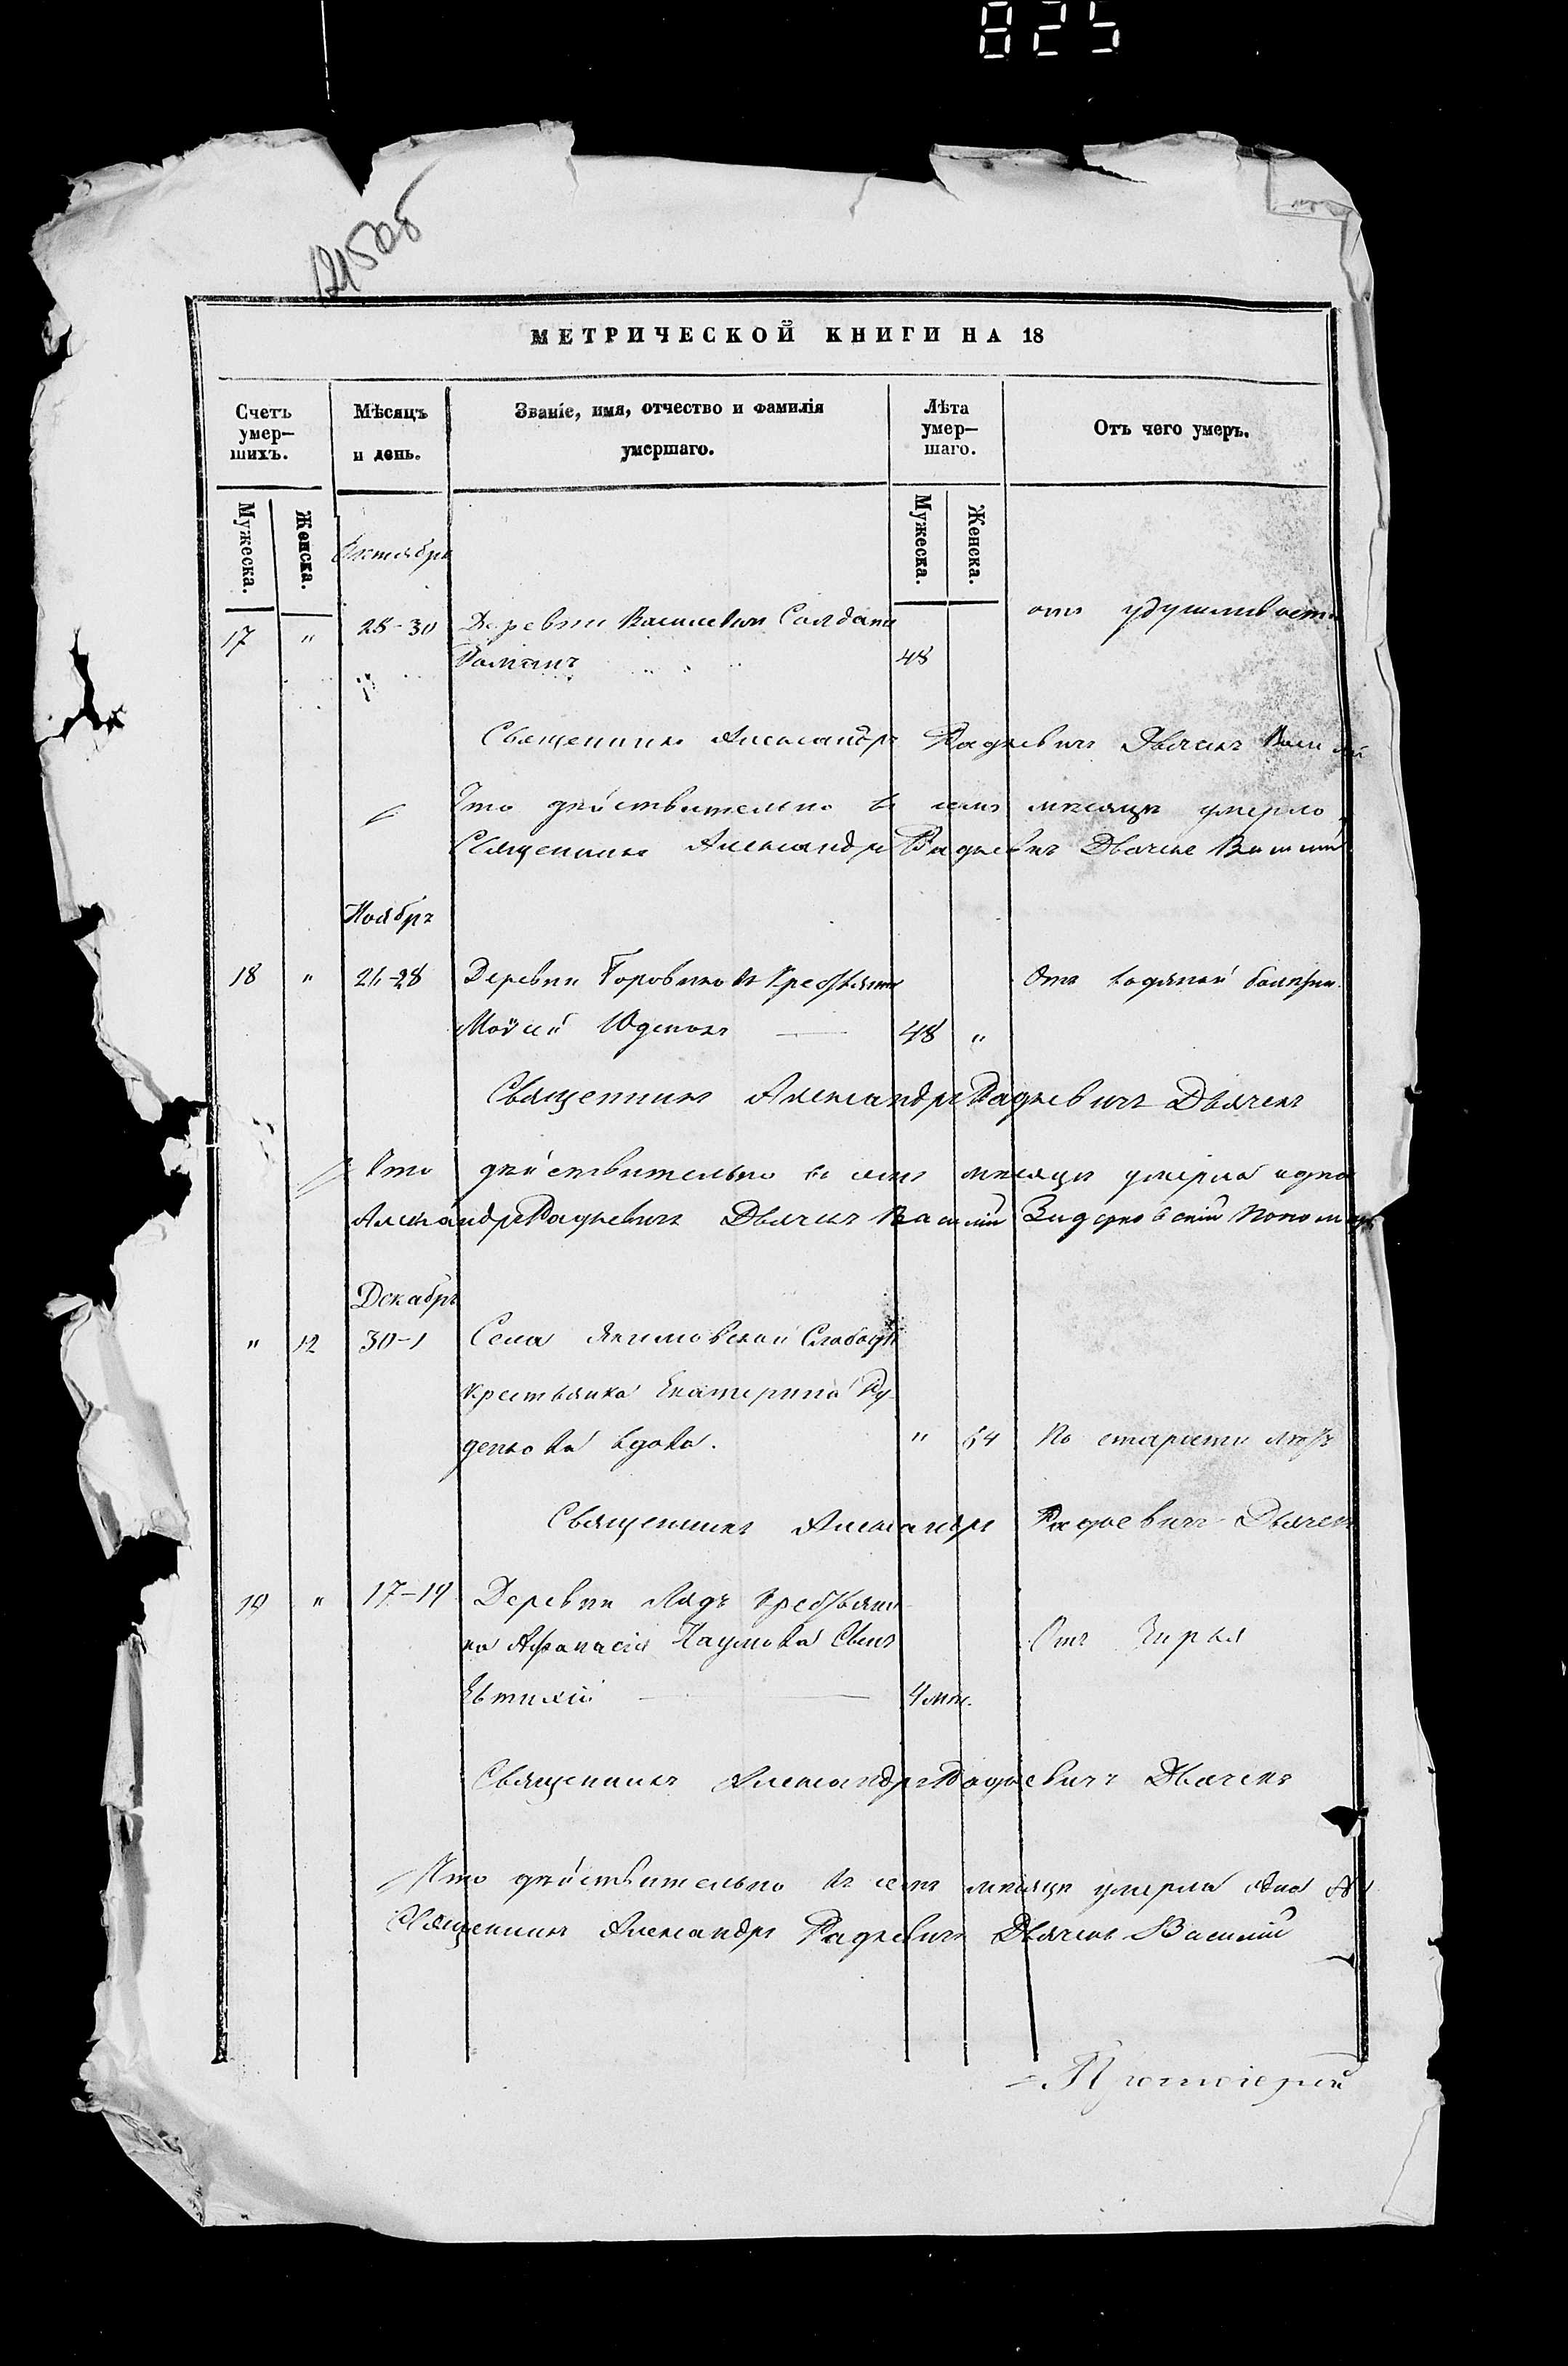 825
МЕТРИЧЕСКОЙ КНИГИ НА 18
Счетъ умер–шихъ.
Мѣсяцъ и день.
Званіе, имя, отчество и фамилія умершаго.
Лѣта умер–шаго.
Отъ чего умеръ.
Мужеска.
Женска.
Мужеска.
Женска.
Октябрь
17 " 28-30 Деревни Солдатъ отъ удушливости
Романъ 48
Священникъ Александръ Радкевичъ Дьячекъ
Что дѣйствительно въ семъ месяцѣ умерло
Священникъ Александръ Радкевичъ Дьячекъ Василій
Ноябрь
18 " 26-28 Деревни Крестьянинъ Отъ водяной болѣзни
Моѵсей 48 "
Священникъ Александръ Радкевичъ Дьячекъ
Что дѣйствительно въ семъ месяцѣ умерла одна
Александръ Радкевичъ Дьячекъ Василій Пономарь
Декабрь
" 12 30-1 Села Якимовской Слободы
крестьянка Екатерина Ру-
денкова вдова. " 64 По старости лѣтъ
Священникъ Александръ Радкевичъ Дьячекъ
19 " 17-19 Деревни Лядъ крестьяни-
на Афанасія Наумова Сынъ Отъ Чирья
Евтихій 4 мѣс.
Священникъ Александръ Радкевичъ Дьячекъ
Что дѣйствительно въ семъ месяцѣ умерла одна
Священникъ Александръ Радкевичъ Дьячекъ Василій
Протоіерей